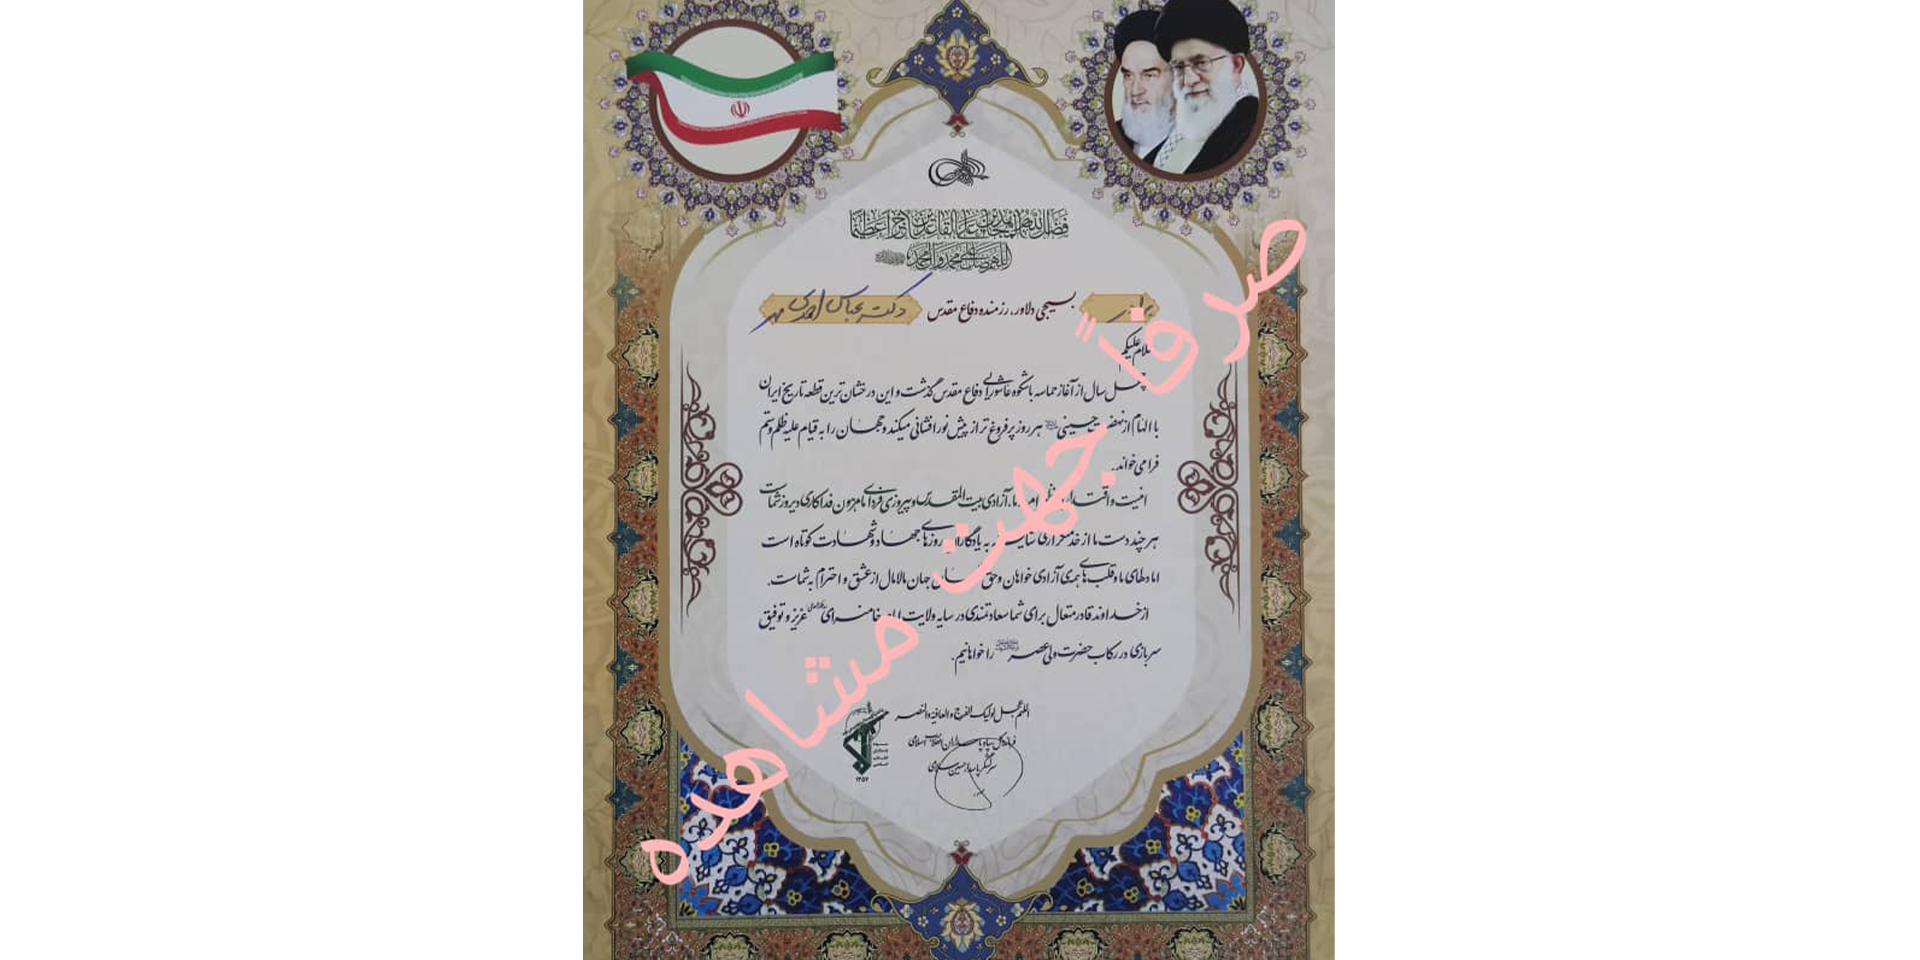 فضل الله المجاهدین علی القاعدین اجرا عظیما
اللهم صل علی محمد و آل محمد
برادر بسیجی دلاور، رزمنده دفاع مقدس دکتر عباس احمدی
سلام علیکم
چهل سال از آغاز حماسه باشکوه عاشورایی دفاع مقدس گذشت و این درخشان ترین قطعه تاریخ ایران
با الهام از نهضت حسینی هر روز پرفروغ تر از پیش نورافشانی میکند و جهان را به قیام علیه ظلم و ستم
فرا می خواند.
امنیت و اقتدار امروز ما، آزادی بیت المقدس و پیروزی فردای ما مرهون فداکاری دیروز شماست
هر چند دست ما از خدمتگزاری شایسته به یادگاران روزهای جهاد و شهادت کوتاه است
اما دلهای ما و قلب های همه ی آزادی خواهان و حق جهان مالامال از عشق و احترام به شماست.
از خداوند قادر متعال برای شما سعادتمندی در سایه ولایت امام خامنه ای عزیز و توفیق
سربازی در رکاب حضرت ولی عصر را خواهانیم.
اللهم عجل لولیک الفرج و العافیة و النصر
فرمانده کل سپاه پاسداران انقلاب اسلامی
سرلشکر پاسدار حسین سلامی
۱۳۵۷
صرفاً جهت مشاهده